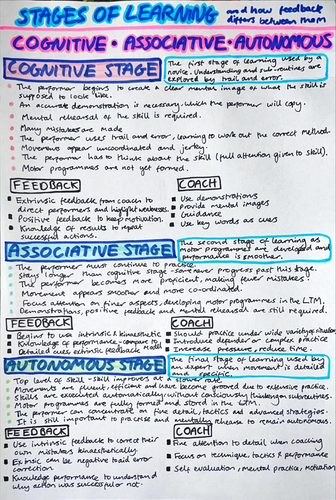 STAGES OF LEARNING and how feedback
differs between them
COGNITIVE • ASSOCIATIVE • AUTONOMOUS
COGNITIVE STAGE
The first stage of learning used by a
novice. Understanding and sub-routines are
explored by trail and error.
The performer begins to create a clear mental image of what the skill is
supposed to look like.
An accurate demonstration is necessary which the performer will copy.
Mental rehearsal of the skill is required.
Many mistakes are made
The performer uses trail and error, learning to work out the correct method.
Movements appear uncoordinated and jerky.
The performer has to think about the skill (full attention given to skill).
Motor programmes are not yet formed.
FEEDBACK
Extrinsic feedback from coach to
direct performers and highlight weaknesses.
Positive feedback to keep motivation.
Knowledge of results to repeat
successful actions.
COACH
Use demonstrations
Provide mental images
Guidance
Use key words as cues
ASSOCIATIVE STAGE
The second stage of learning as
motor programmes are developed and
performance is smoother.
The performer must continue to practice.
Stays longer than cognitive stage - some never progress past this stage.
The performer becomes more proficient, making fewer mistakes!
Movement appears smoother and more co-ordinated.
Focus attention on finer aspects, developing motor programmes in the LTM.
Demonstrations, positive feedback and mental rehearsal are still required.
FEEDBACK
Begin to use intrinsic & kinaesthetic
Knowledge of performance - compare to
Detailed cues extrinsic feedback
COACH
Should practice under wide variety of situations
Introduce defender or complex practice
Increase pressure, reduce time.
AUTONOMOUS STAGE
The final stage of learning used by
an expert when movement is detailed
and specific.
Top level of skill - skill improves at a slower rate.
Movements are fluent, efficient and have become grooved due to extensive practice.
Skills are executed automatically, without consciously thinking on subroutines.
Motor programmes are fully formed and stored in the LTM.
The performer can concentrate on fine detail, tactics and advanced strategies.
It is still important to practise and mentally rehearse to remain autonomous.
FEEDBACK
Use intrinsic feedback to correct their
own mistakes kinaesthetically.
Extrinsic can be negative to aid error
correction.
Knowledge performance to understand
why action was successful or not.
COACH
Fine attention to detail when coaching
Focus on technique, tactics & performance
Self evaluation, mental practice, motivation